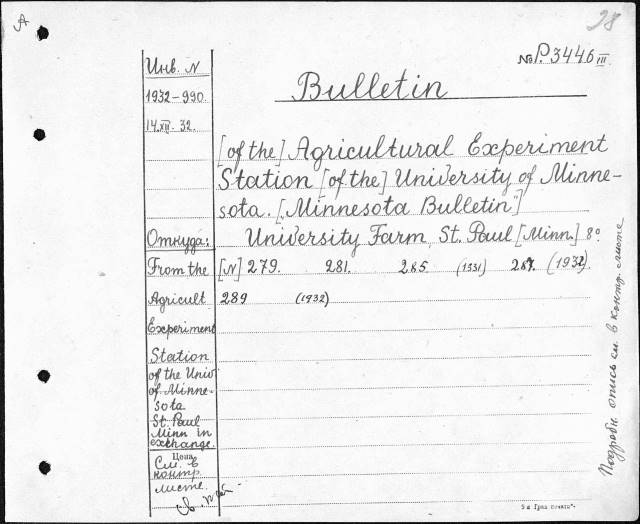 А
28
№ P. 3446 III
Инв. N
1932-990.
14.XII.32.
Bulletin
[of the] Agricultural Experiment
Station [of the] University of Minne-
sota. ["Minnesota Bulletin"]
University Farm, St. Paul [Minn.] 8°.
Откуда:
From the
Agricult
Experiment
Station
of the Univ
of Minne-
sota
St. Paul
Minn in
exchange.
[N] 279. 281. 285 (1931) 287. (1932).
289 (1932)
Цена
См. в
контр.
листе.
Подробн. опись см. в контр. листе
5-я Град. печать".